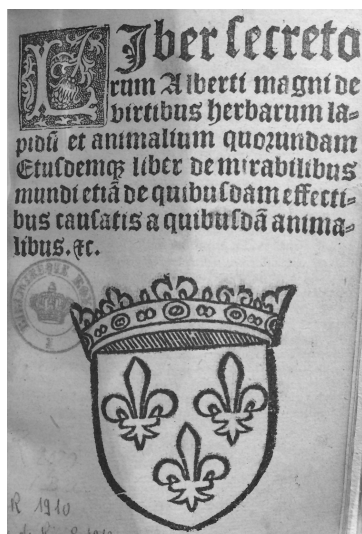 LIber secreto
rum Alberti magni de
virtibus herbarum la⸗
pidū et animalium quorundam
Eiusdemqꝫ liber de mirabilibus
mundi etiā de quibusdam effecti⸗
bus causatis a quibusdā anima⸗
libus. ⁊c.
R 1910